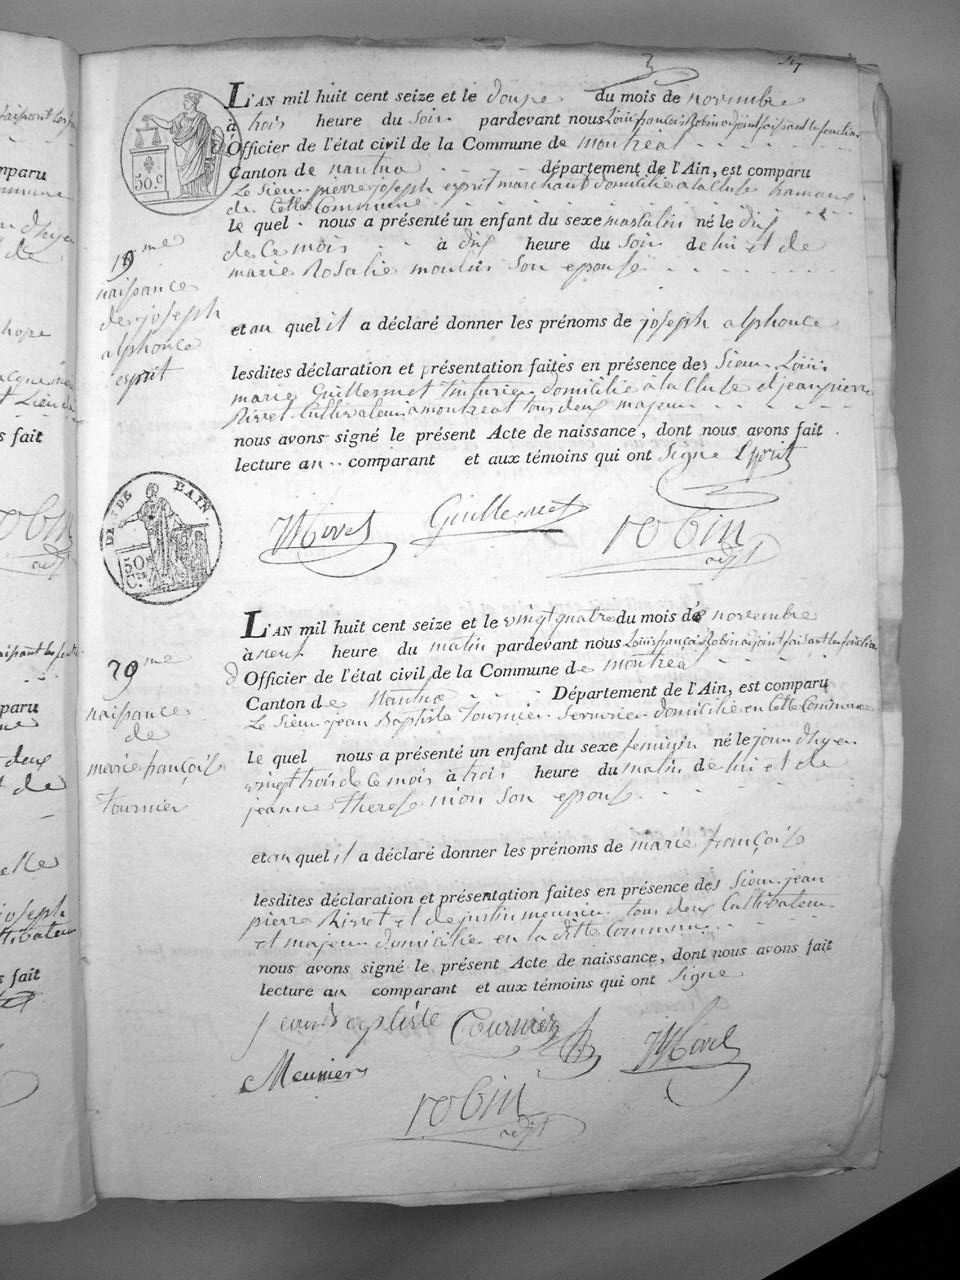 L'AN mil huit cent seize et le douse du mois de novembre
à trois heure du soir pardevant nous Louis françois Robin adjoint faisant les fonction
Officier de l'état civil de la Commune de montréal
Canton de nantua département de l'Ain, est comparu
Le Sieur pierre joseph esprit marchant domicilié a la Cluse hameau
de Cette Commune
le quel nous a présenté un enfant du sexe masculin né le dix
de Ce mois à dix heure du soir de lui et de
marie Rosalie moulin son epouse
19me
naissance
de joseph
alphonce
esprit
et au quel il a déclaré donner les prénoms de joseph alphonce
lesdites déclaration et présentation faites en présence des Sieur Louis
marie Guillermet domicilié à la Cluse et jean pierre
Rivret Cultivateur a montreal tous deux majeur
nous avons signé le présent Acte de naissance, dont nous avons fait
lecture au comparant et aux témoins qui ont signé Esprit
Guillermet
robin
adjt
DE BAIN
50
Cs
50.c
L'AN mil huit cent seize et le vingt quatre du mois de novembre
à neuf heure du matin pardevant nous Louis françois Robin adjoint faisant les fonction
d Officier de l'état civil de la Commune de montréal
Canton de Nantua Département de l'Ain, est comparu
Le Sieur jean Baptiste Tournier Serrurier domicilié en Cette Commune
le quel nous a présenté un enfant du sexe feminin né le jour d'hyer
vingt trois de ce mois à trois heure du matin de lui et de
jeanne Therese nion son epouse
20me
naissance
de
marie françoise
Tournier
et au quel il a déclaré donner les prénoms de marie françoise
lesdites déclaration et présentation faites en présence des Sieur jean
pierre Rivret et de justin meunier tous deux Cultivateur
et majeur domicilié en la ditte Commune
nous avons signé le présent Acte de naissance, dont nous avons fait
lecture au comparant et aux témoins qui ont signé
jean Baptiste Tournier
Meunier
robin
adjt